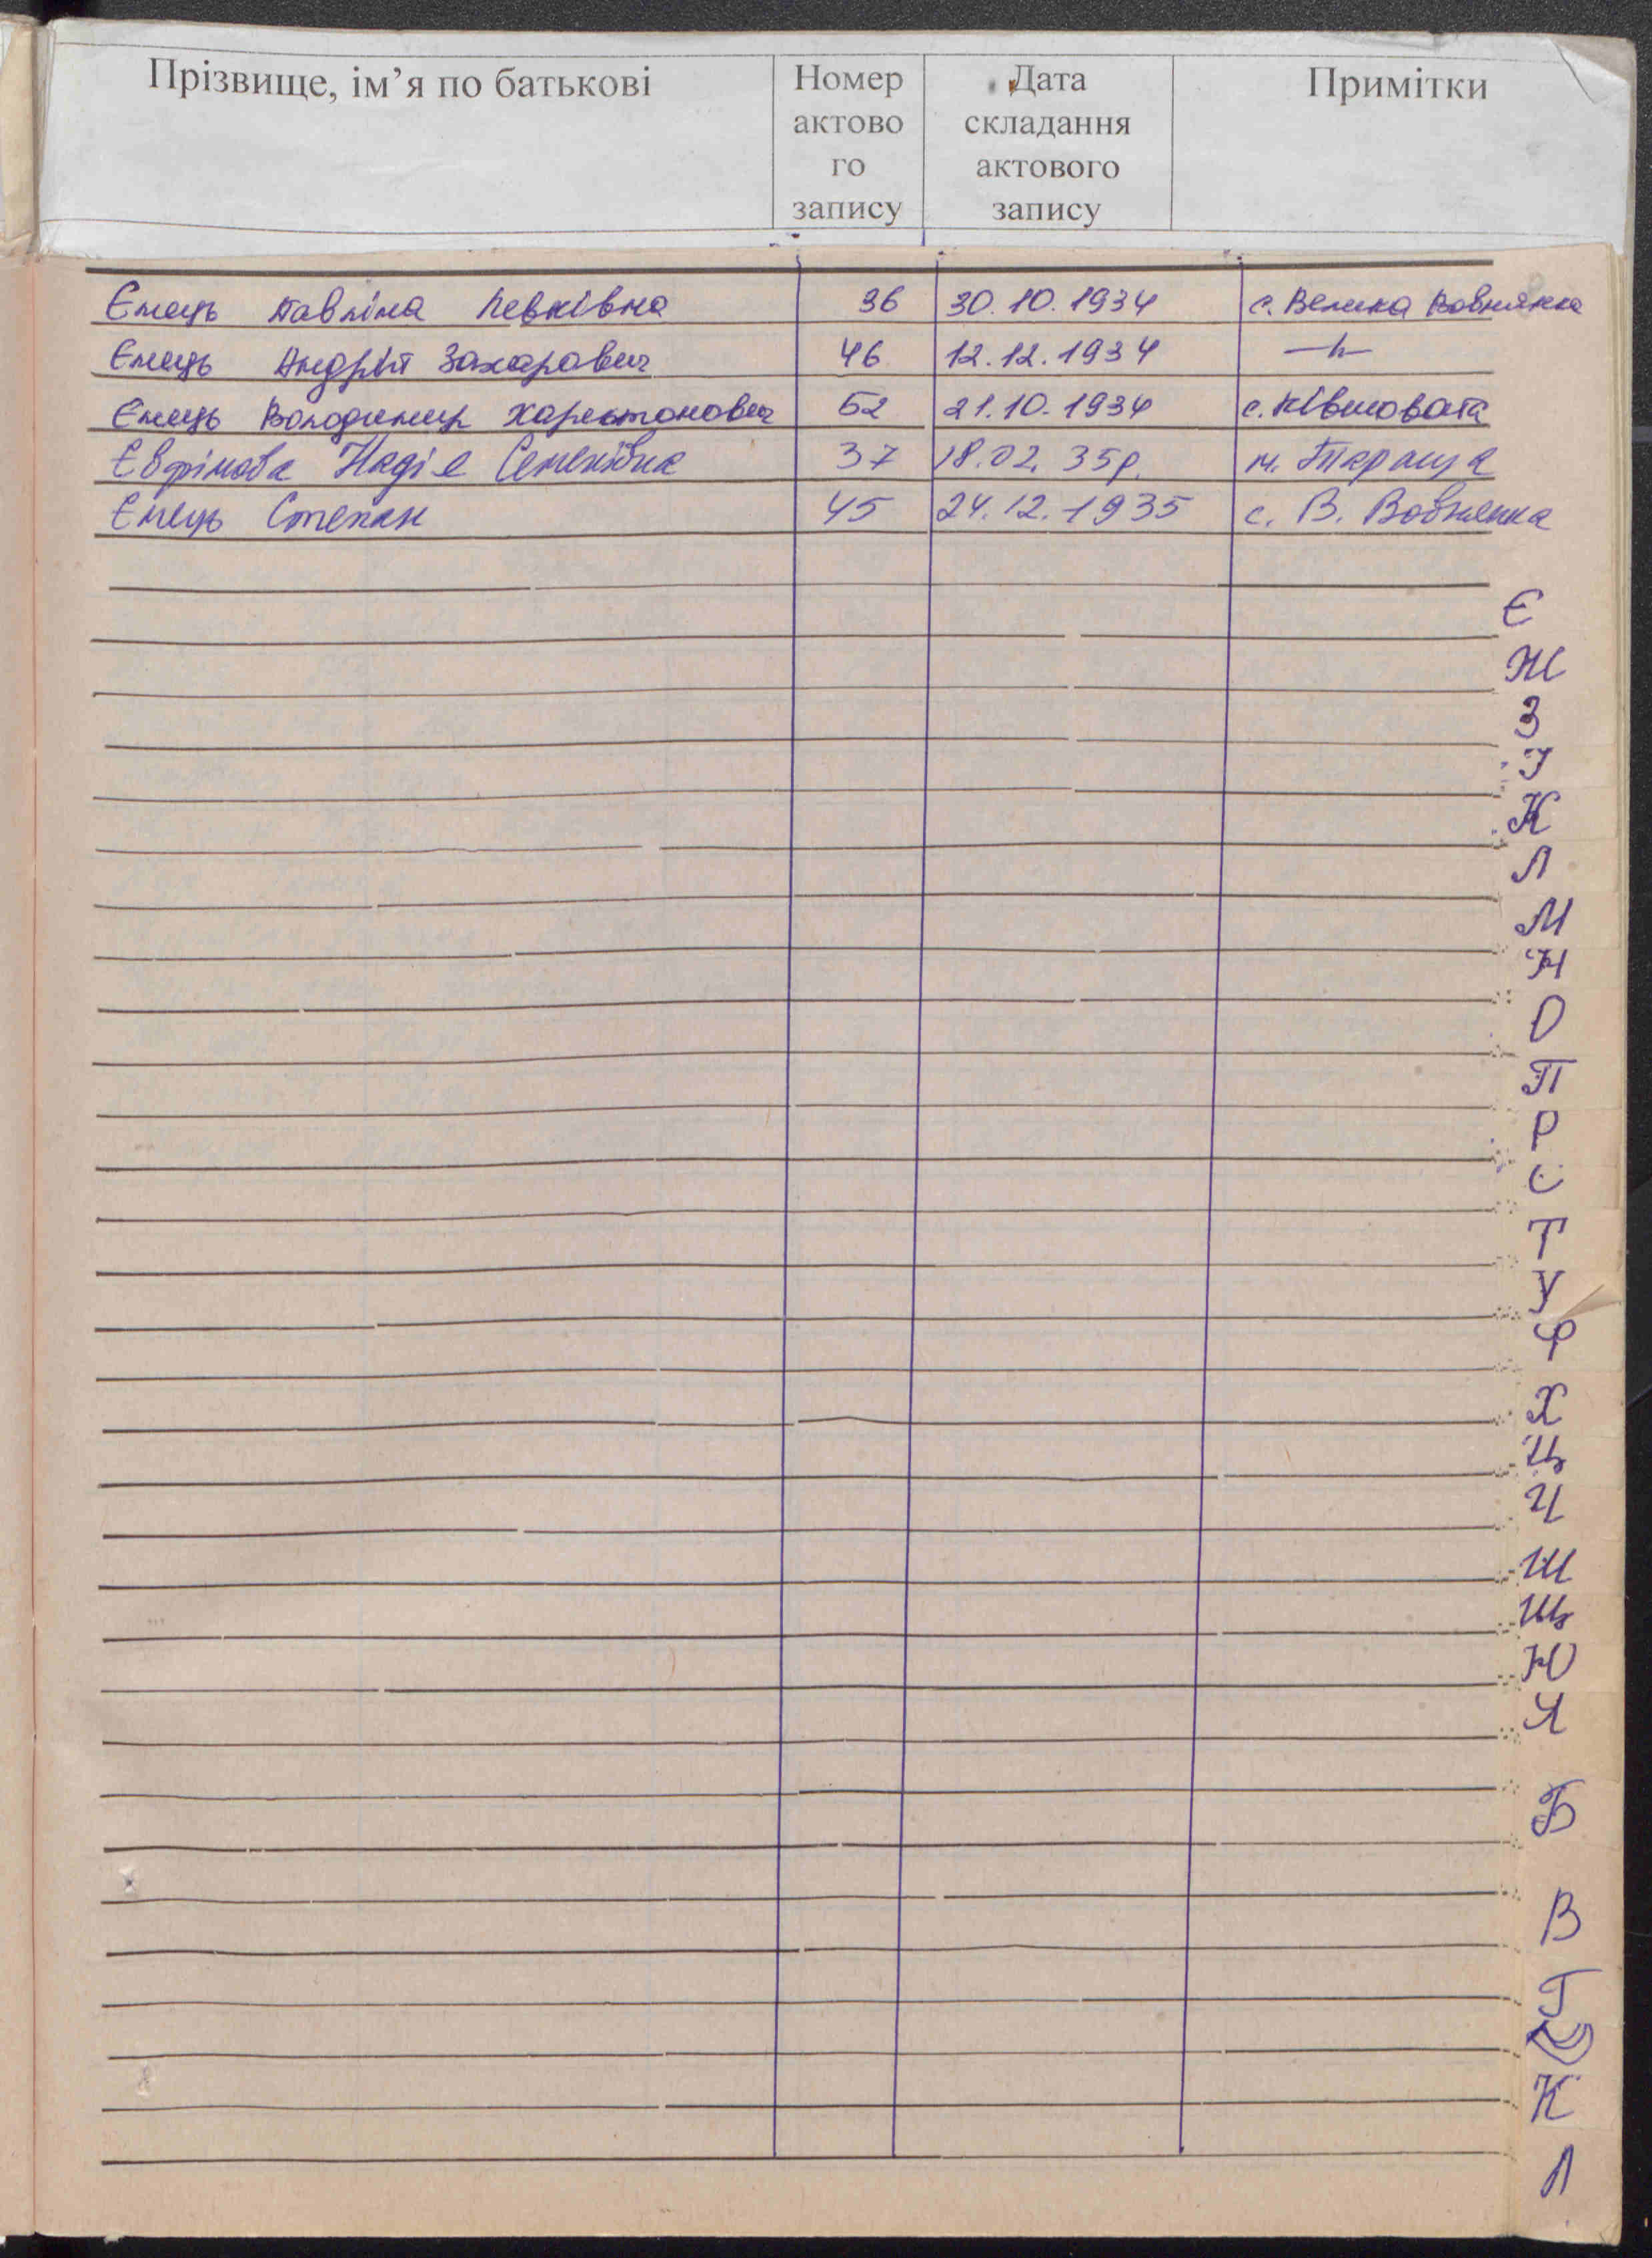 Прізвище, ім’я по батькові
Номер актово го запису
Дата складання актового запису
Примітки
Ємець Павліна Левківна 36 30.10.1934 с. Велика Вовнянка
Ємець Андрій Захарович 46 12.12.1934 —"—
Ємець Володимир Харитонович 52 21.10.1934 с. Ківшовата
Євфімова Надія Семенівна 37 18.02.35р. м. Тараща
Ємець Степан 45 24.12.1935 с. В. Вовнянка
Є
Ж
З
І
К
Л
М
Н
О
П
Р
С
Т
У
Ф
Х
Ц
Ч
Ш
Щ
Ю
Я
Б
В
Г
К
Л